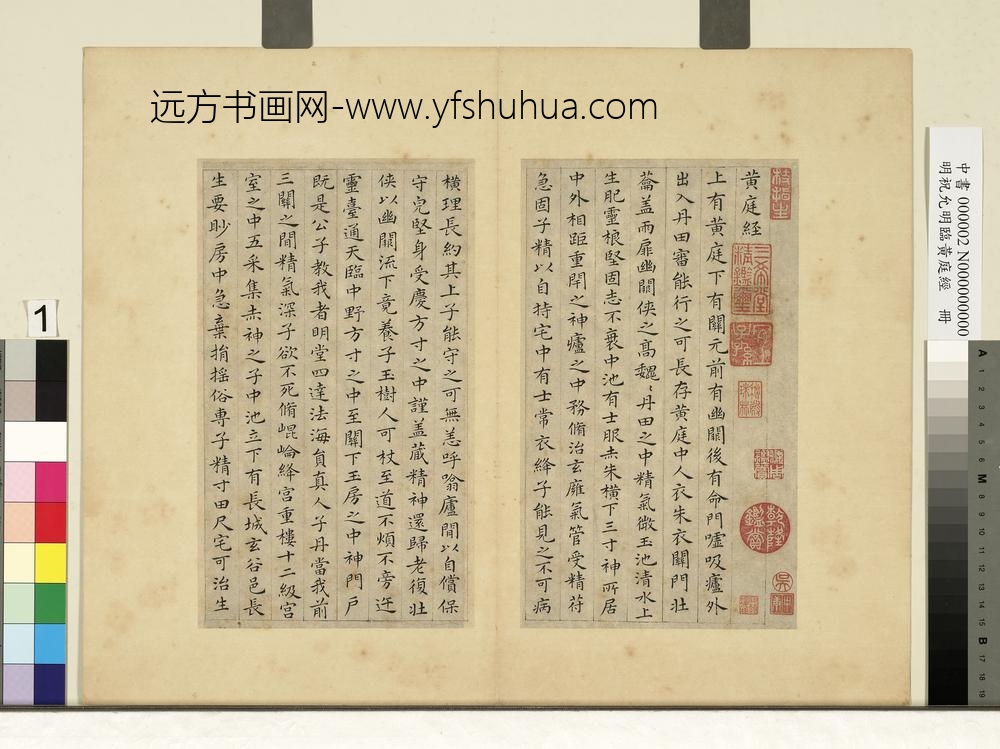 远方书画网-www.yfshuhua.com
黄庭経
上有黄庭下有關元前有幽關後有命門噓吸廬外
出入丹田審能行之可長存黄庭中人衣朱衣關門壮
蘥盖兩扉幽關俠之髙巍〻丹田之中精氣微玉池清水上
生肥靈根堅固志不衰中池有士服赤朱横下三寸神所居
中外相距重閉之神廬之中務脩治玄廱氣管受精苻
急固子精以自持宅中有士常衣絳子能見之不可病
横理長約其上子能守之可無恙呼噏廬間以自償保
守完堅身受慶方寸之中謹盖蔵精神還歸老復壮
俠以幽關流下竟養子玉樹人可杖至道不煩不旁迕
靈臺通天臨中野方寸之中至關下玉房之中神門戸
既是公子教我者明堂四達法海貟真人子丹當我前
三關之間精氣深子欲不死脩崐崘絳宫重樓十二級宫
室之中五采集赤神之子中池立下有長城玄谷邑長
生要眇房中急棄捐摇俗専子精寸田尺宅可治生
三希堂精鑑璽
乾隆鑑賞
中書 000002 N000000000
明祝允明臨黃庭經 冊
1
A 1 2 3 4 5 6 M 8 9 10 11 12 13 14 15 B 17 18 19